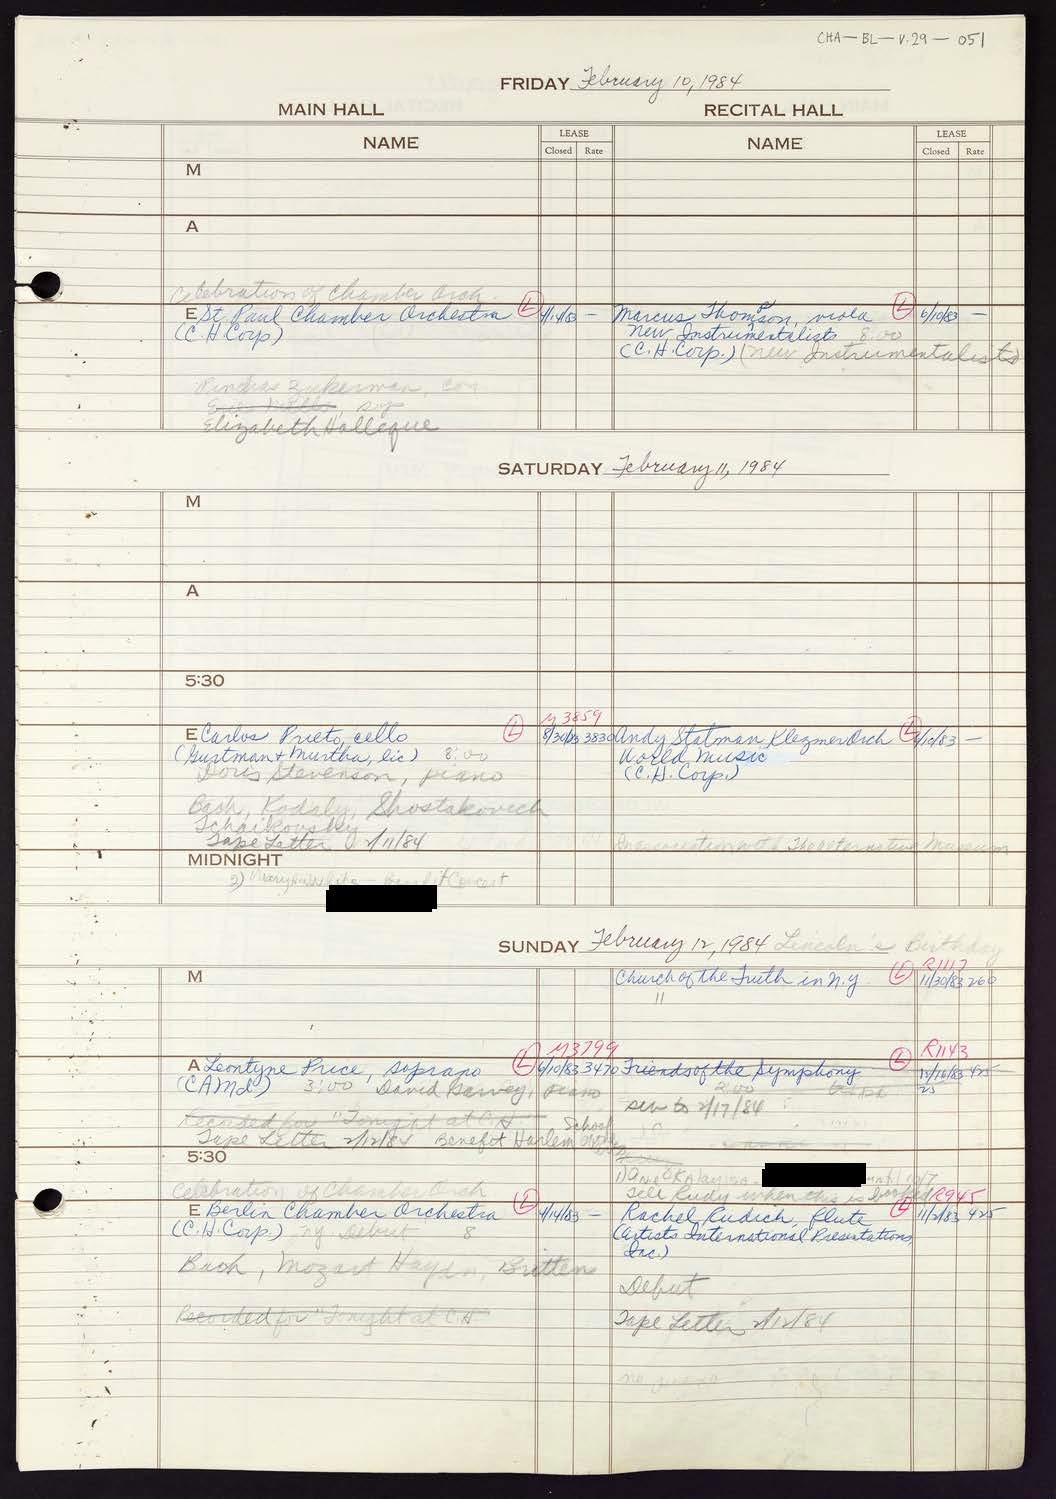 CHA-BL-V.29-051
FRIDAY February 10, 1984
MAIN HALL
RECITAL HALL
NAME
LEASE
Closed Rate
NAME
LEASE
Closed Rate
M
A
Celebration of Chamber Orch.
E St. Paul Chamber Orchestra (L) 4/14/83 —
(C.H. Corp)
Zukerman, con
Elizabeth
Marcus Thompson, viola (L) 6/10/83 —
New Instrumentalists 8:00
(C.H. Corp.) (New Instrumentalists)
SATURDAY February 11, 1984
M
A
5:30
M3859
E Carlos Prieto, cello (L) 8/30/83 3830
(Gurtman + Murtha, lic) 8:00
Doris Stevenson, piano
Bach, Kodaly, Shostakovich
Tchaikovsky
Tape Letter 2/11/84
Andy Statman Klezmer Orch (L) 6/10/83 —
World Music
(C.H. Corp.)
In association with The Alternative Museum
MIDNIGHT
2) Benefit Concert
SUNDAY February 12, 1984 Lincoln's Birthday
M
R1117
Church of the Truth in N.Y. (L) 11/30/83 260
"
M3799
A Leontyne Price, soprano (L) 6/10/83 3470
(CAMI) 3:00 David Garvey, piano
Recorded for "Tonight at C.H."
Tape Letter 2/12/84 Benefit Harlem School
R1143
Friends of the Symphony (L) 12/16/83 425
2:00 25
2/17/84
5:30
Tell Rudy when this is
Celebration of Chamber Orch
E Berlin Chamber Orchestra (L) 4/14/83 —
(C.H. Corp.) NY Debut 8
Bach, Mozart Haydn, Britten
Recorded for "Tonight at C.H."
R945
Rachel Rudich, flute (L) 11/2/83 425
(Artists International Presentations,
Inc.)
Debut
Tape Letter 2/12/84